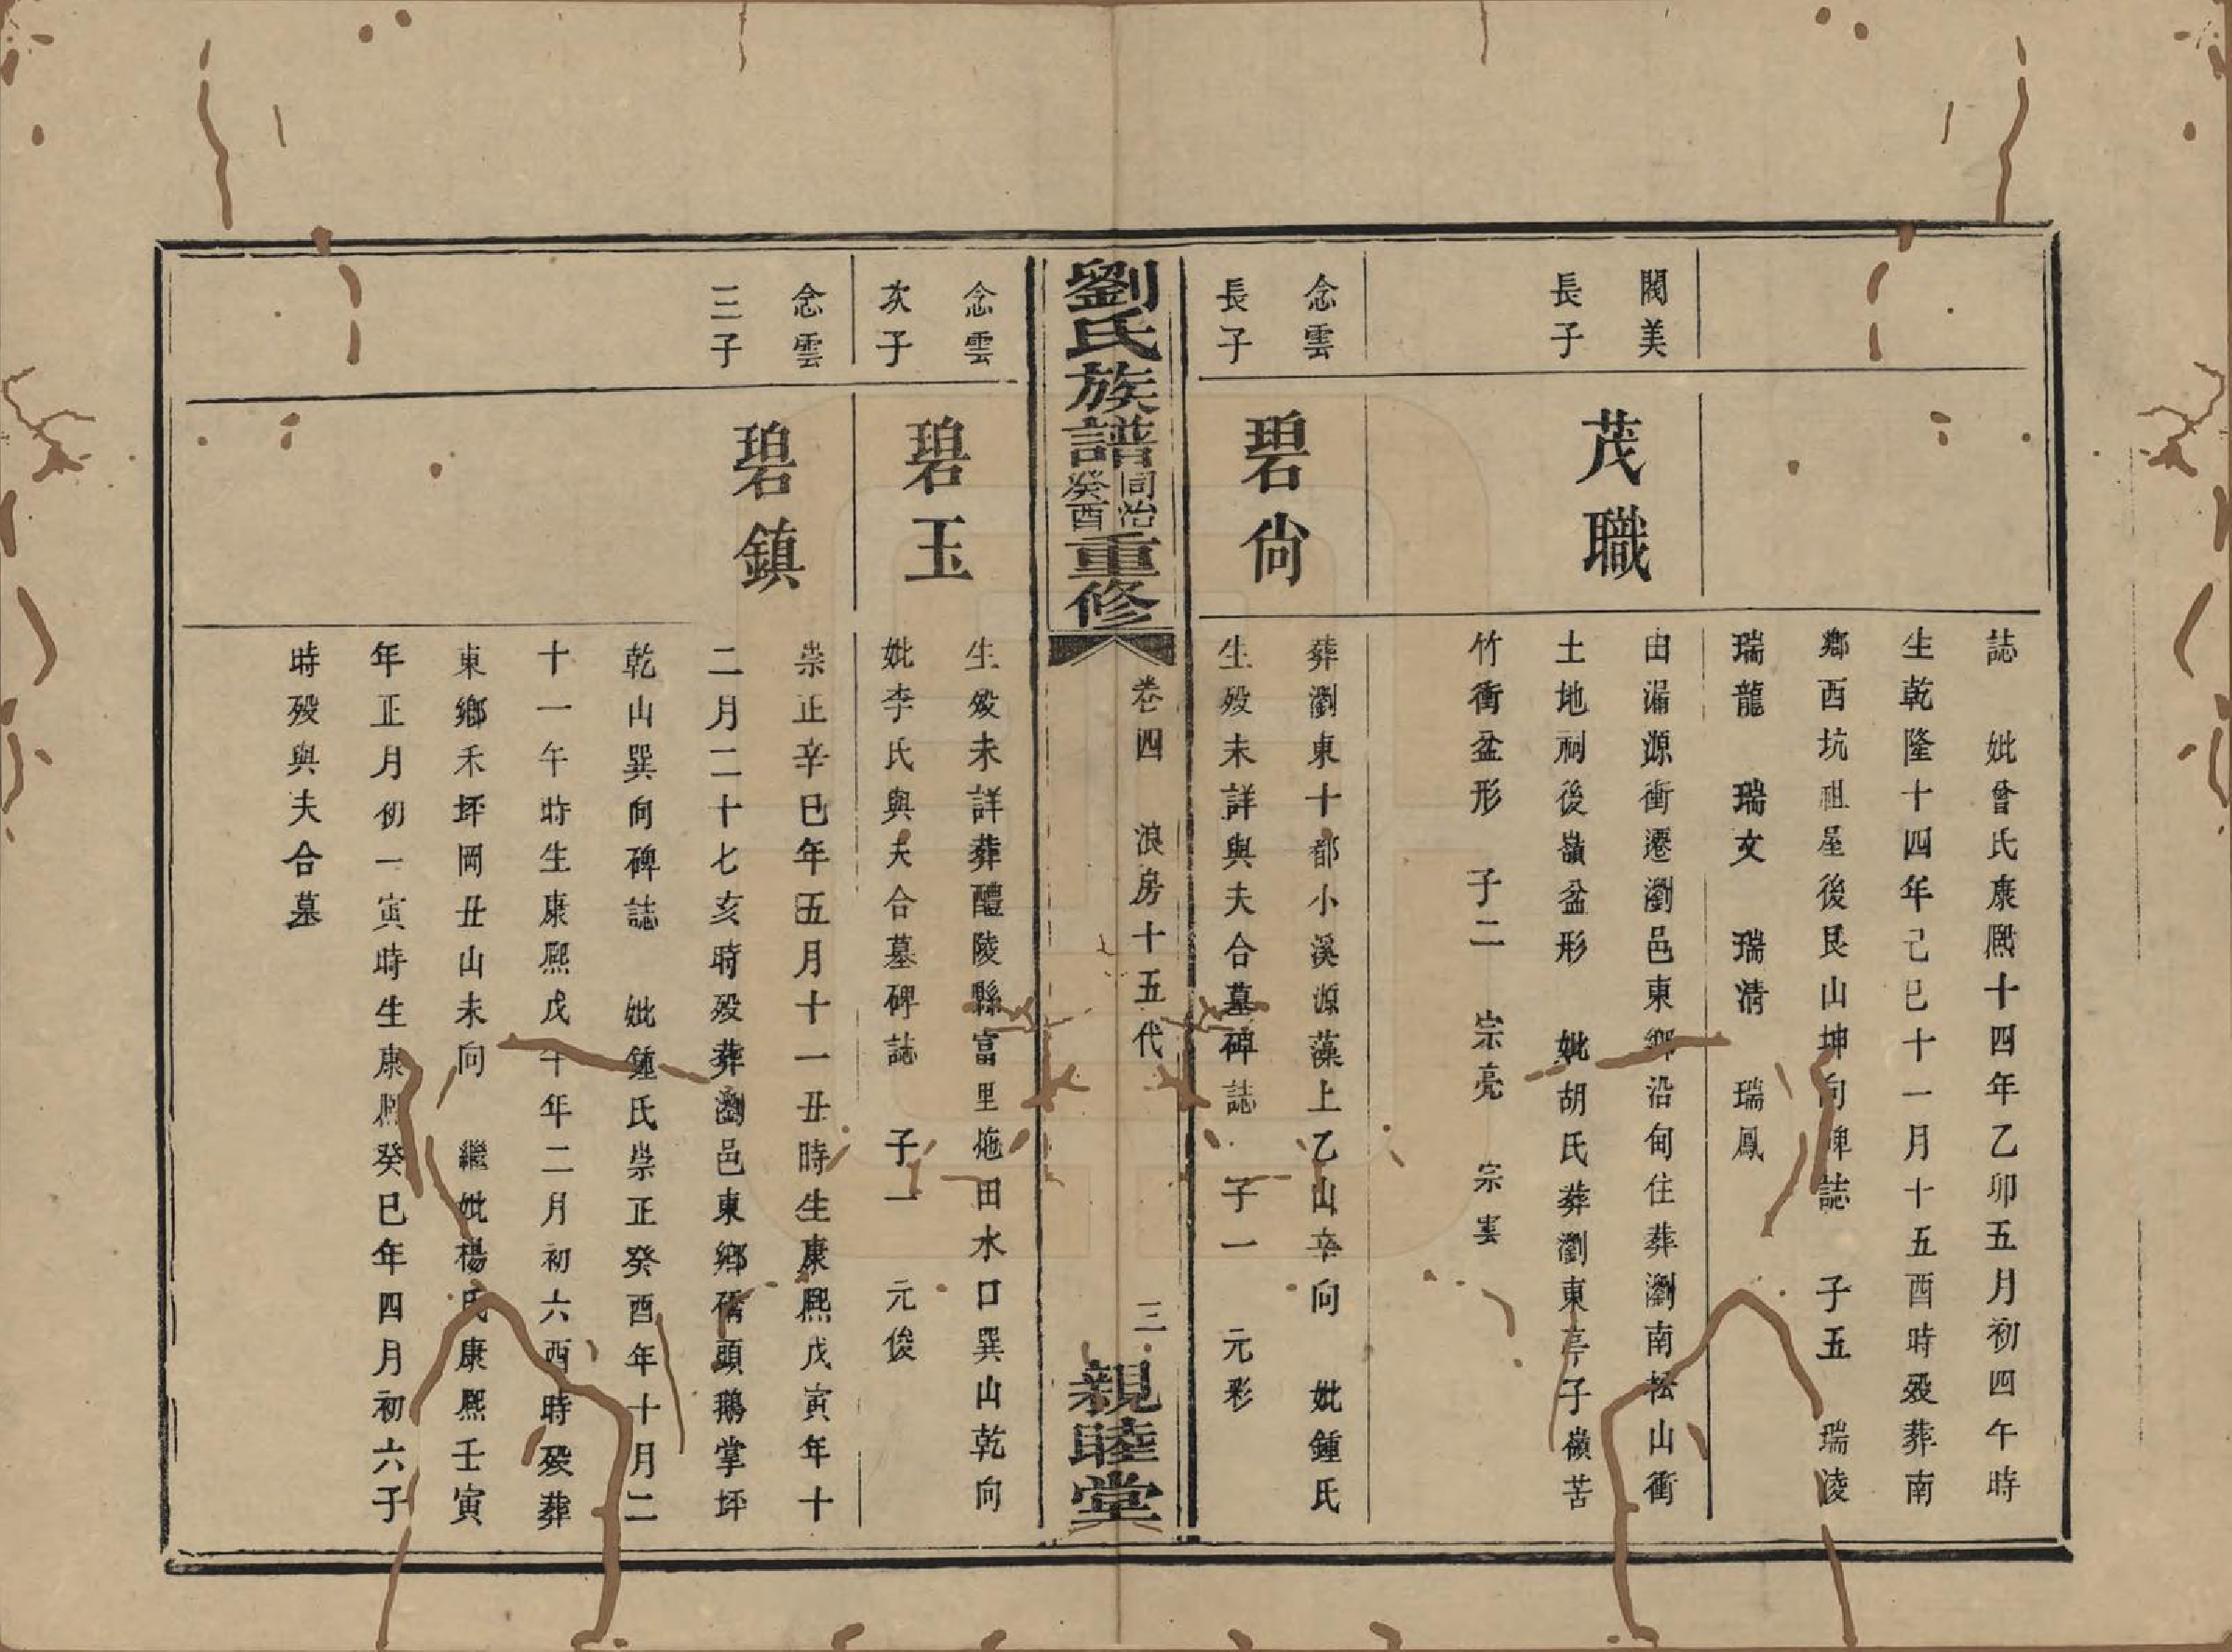 誌　妣曾氏康熙十四年乙卯五月初四午時
生乾隆十四年己巳十一月十五酉時歿葬南
鄉西坑祖屋後艮山坤向碑誌　子五　瑞淩
瑞龍　瑞文　瑞清　瑞鳳
閥美
長子
茂職
由漏源衝遷瀏邑東鄉沿甸住葬瀏南松山衝
土地祠後嶺盆形　妣胡氏葬瀏東亭子嶺苦
竹衝盆形　子二　宗亮　宗雲
念雲
長子
碧尙
葬瀏東十都小溪源藻上乙山辛向　妣鍾氏
生歿未詳與夫合墓碑誌　子一　元彩
劉氏族譜同治癸酉重修
卷四　浪房十五代　三
親睦堂
念雲
次子
碧玉
生歿未詳葬醴陵縣富里炧田水口巽山乾向
妣李氏與夫合墓碑誌　子一　元俊
念雲
三子
碧鎮
崇正辛巳年五月十一丑時生康熙戊寅年十
二月二十七亥時歿葬瀏邑東鄉橋頭鵝掌坪
乾山巽向碑誌　妣鍾氏崇正癸酉年十月二
十一午時生康熙戊午年二月初六酉時歿葬
東鄉禾坪岡丑山未向　繼妣楊氏康熙壬寅
年正月初一寅時生康熙癸巳年四月初六子
時歿與夫合墓